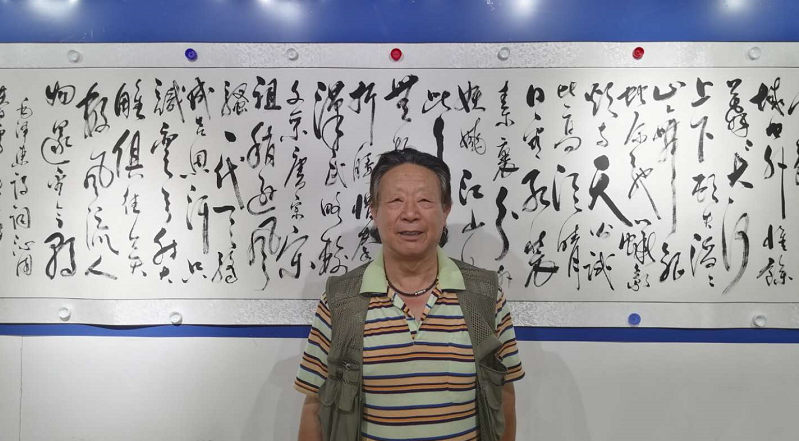 城内外惟餘
莽莽大河
上下顿失滔滔
山舞銀蛇
原驰蜡象
欲与天公试
比高须晴
日看红装
素裹分外
妖娆江山
此
無
折腰惜秦
漢武略輸
文采唐宗宋
祖稍逊风
骚一代天骄
成吉思汗只
識弯弓射大
雕俱往矣
数风流人
物还看今朝
毛泽东诗词沁园